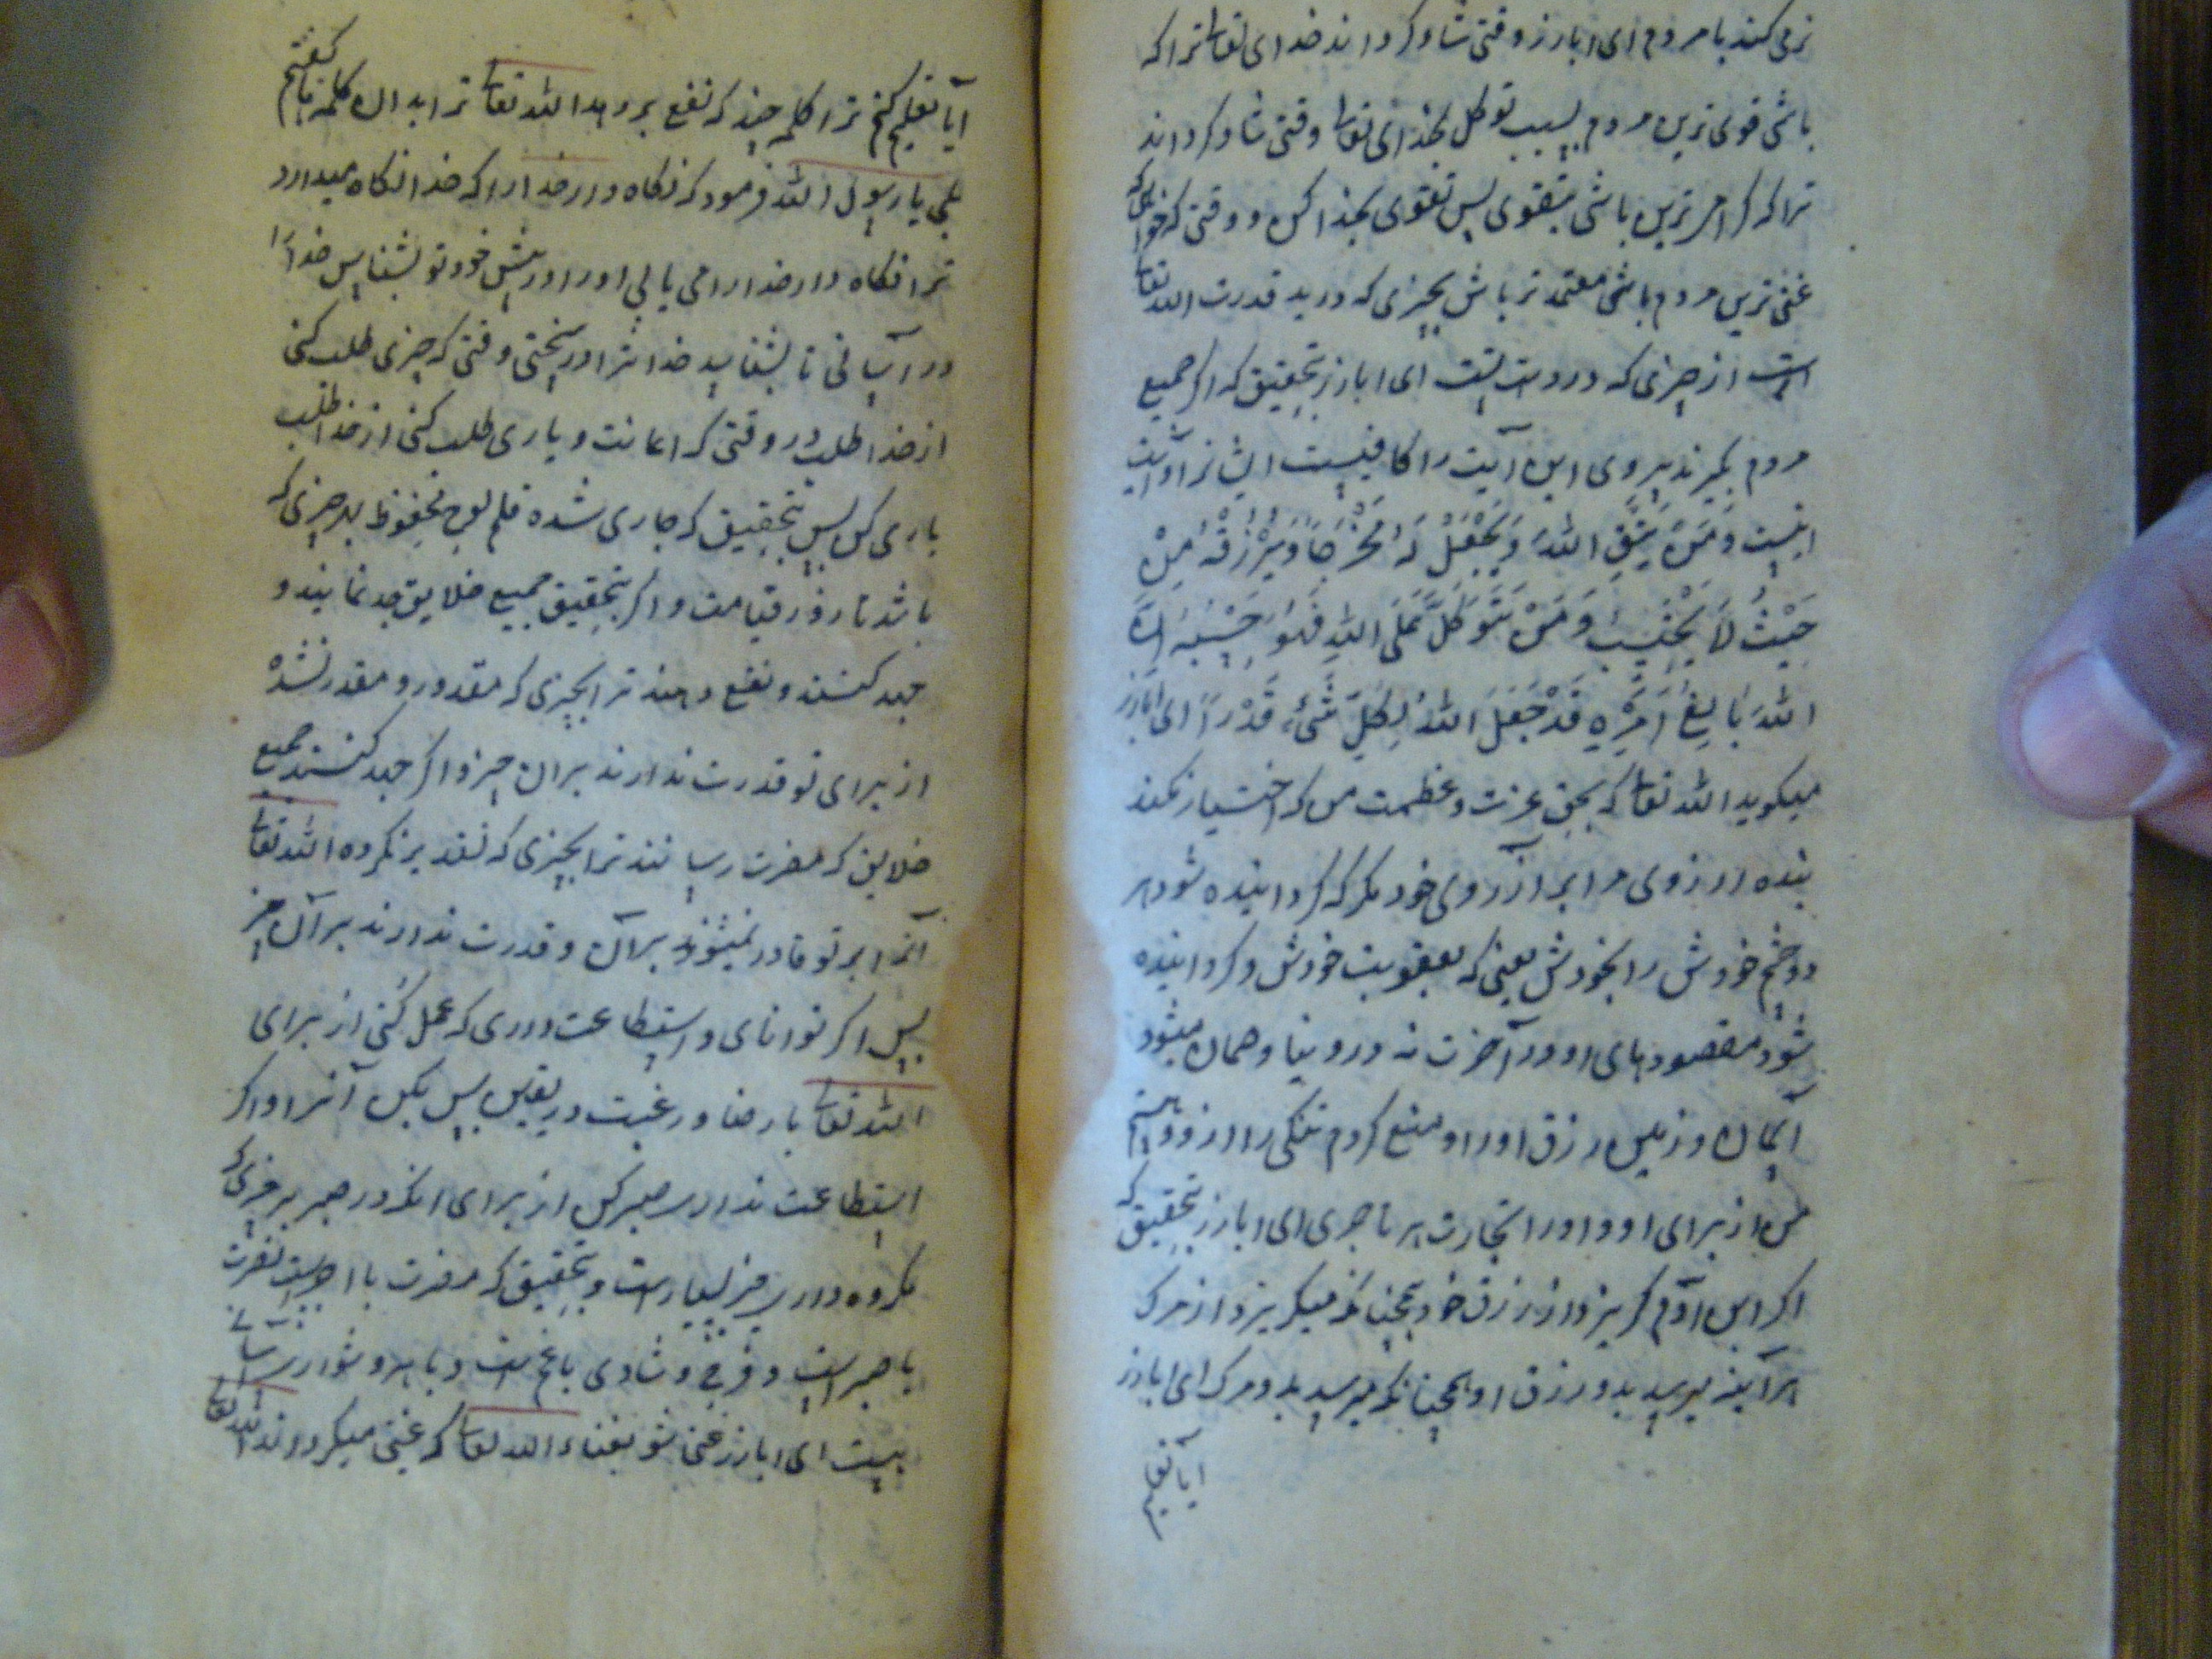 نرمی کند با مردم ای ابازر وقتی شاد کرداند خدای تعالی ترا که
باشی قوی ترین مردم بسبب توکل بخدای تعالی وقتی شاد کرداند
ترا که کرامی ترین باشی بتقوی پس تقوی بخدا کن و وقتی که خواهی که
غنی ترین مردم باشی معتمد تر باش بچیزی که در ید قدرت الله تعالی
است از چیزی که در دست تست ای ابازر بتحقیق که اکر جمیع
مردم بکیرند پیروی این آیت را کافیست ایشانرا و آیت
اینست وَمَنْ يَتَّقِ اللّٰهَ يَجْعَلْ لَهُ مَخْرَجًا وَيَرْزُقْهُ مِنْ
حَيْثُ لَا يَحْتَسِبُ وَمَنْ يَتَوَكَّلْ عَلَى اللّٰهِ فَهُوَ حَسْبُهُ اِنَّ
اللّٰهَ بَالِغُ اَمْرِهِ قَدْ جَعَلَ اللّٰهُ لِكُلِّ شَیْءٍ قَدْرًا ای ابازر
میکوید الله تعالی که بحق عزت و عظمت من که اختیار نکند
بنده ارزوی مرا بر آرزوی خود مکر که کردانیده شود هر
دو چشم خودش را بخودش یعنی که بعقوبت خودش و کردانیده
شود مقصودهای او در آخرت نه در دنیا و همان میشود
آسمان و زمین رزق او را و منع کردم تنکی را ازو و هستم
من از برای او و او را تجارت هر تاجری ای ابازر بتحقیق که
اکر ابن آدم کریزد از رزق خود همچنانکه میکریزد از مرک
هرآینه برسد بدو رزق او همچنانکه میرسد بدو مرک ای ابازر
ایا تعلیم
ایا تعلیم کنم ترا کلمه چند که نفع بر دهد الله تعالی ترا بدان کلمه ها کفتم
بلی یا رسول الله فرمود که نکاه دار خدا را که خدا نکاه میدارد
ترا نکاه دار خدا را می یابی او را در پیش خود تو بشناس خدا را
در آسانی تا بشناسد خدا ترا در سختی وقتی که چیزی طلب کنی
از خدا طلب و در وقتی که اعانت و یاری طلب کنی از خدا طلب
یاری کن پس بتحقیق که جاری شده قلم لوح محفوظ بهر چیزی که
باشد تا روز قیامت و اکر بتحقیق جمیع خلایق جد نمایند و
جهد کنند و نفع دهند ترا بچیزی که مقدور و مقدر نشده
از برای تو قدرت ندارند بران چیز و اکر جهد کنند جمیع
خلایق که مضرت رسانند ترا بچیزی که تقدیر نکرده الله تعالی
آنرا بر تو قادر نمیشوند برآن و قدرت ندارند بر آن چیز
پس اکر توانای و استطاعت داری که عمل کنی از برای
الله تعالی با رضا و رغبت در یقین پس بکن آنرا و اکر
استطاعت نداری صبر کن از برای انکه در صبر بر چیزی که
مکروه داری خیر بسیار است و بتحقیق که نصرت
با صبر است و فرح و شادی با غم است و با هر دشواری آسانی
نیست ای ابازر غنی شو بغناء الله تعالی که غنی میکرداند الله تعالی